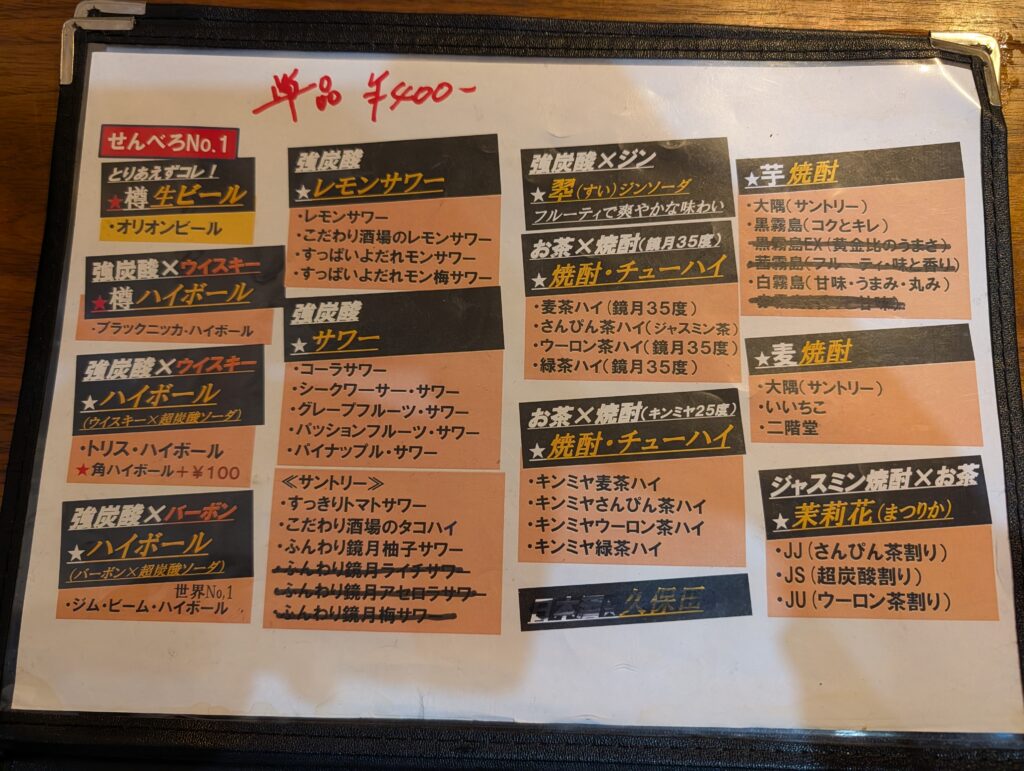 単品 ¥400-
せんべろNo.1
とりあえずコレ！
★樽 生ビール
・オリオンビール
強炭酸×ウイスキー
★樽 ハイボール
・ブラックニッカ・ハイボール
強炭酸×ウイスキー
★ハイボール
(ウイスキー×超炭酸ソーダ)
・トリス・ハイボール
★角ハイボール＋￥100
強炭酸×バーボン
★ハイボール
(バーボン×超炭酸ソーダ)
世界No,1
・ジム・ビーム・ハイボール
強炭酸
★レモンサワー
・レモンサワー
・こだわり酒場のレモンサワー
・すっぱいよだれモンサワー
・すっぱいよだれモン梅サワー
強炭酸
★サワー
・コーラサワー
・シークワーサー・サワー
・グレープフルーツ・サワー
・パッションフルーツ・サワー
・パイナップル・サワー
≪サントリー≫
・すっきりトマトサワー
・こだわり酒場のタコハイ
・ふんわり鏡月柚子サワー
・ふんわり鏡月ライチサワー
・ふんわり鏡月アセロラサワー
・ふんわり鏡月梅サワー
強炭酸×ジン
★翠(すい)ジンソーダ
フルーティで爽やかな味わい
お茶×焼酎(鏡月35度)
★焼酎・チューハイ
・麦茶ハイ(鏡月35度)
・さんぴん茶ハイ(ジャスミン茶)
・ウーロン茶ハイ(鏡月35度)
・緑茶ハイ(鏡月35度)
お茶×焼酎(キンミヤ25度)
★焼酎・チューハイ
・キンミヤ麦茶ハイ
・キンミヤさんぴん茶ハイ
・キンミヤウーロン茶ハイ
・キンミヤ緑茶ハイ
久保田
★芋 焼酎
・大隅(サントリー)
・黒霧島(コクとキレ)
・黒霧島EX(黄金比のうまさ)
・茜霧島(フルーティ・味と香り)
・白霧島(甘味・うまみ・丸み)
★麦 焼酎
・大隅(サントリー)
・いいちこ
・二階堂
ジャスミン焼酎×お茶
★茉莉花(まつりか)
・JJ(さんぴん茶割り)
・JS(超炭酸割り)
・JU(ウーロン茶割り)